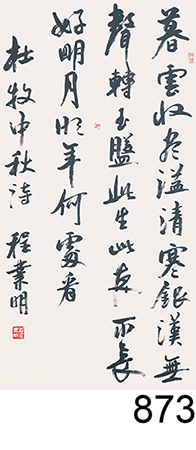 暮雲收盡溢清寒銀漢無
聲轉玉盤此生此夜不長
好明月明年何處看
杜牧中秋詩 程業明
873